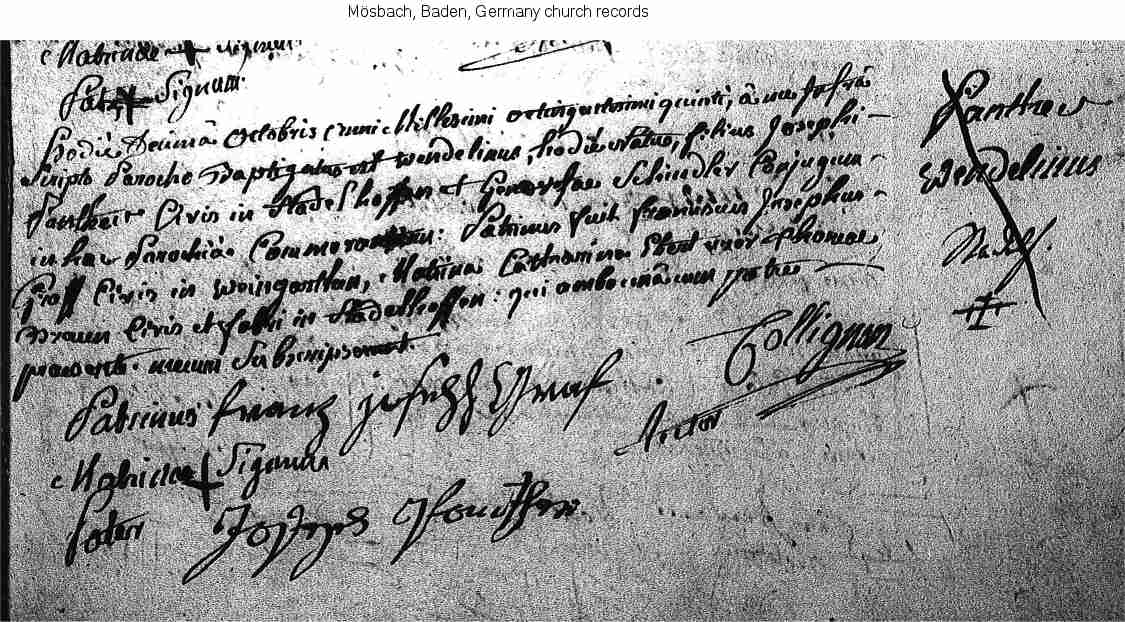 Mösbach, Baden, Germany church records
Signum
Pater Signum.
Hodie Decimâ Octobris anni Millesimi octingentesimi quinti, â me Infrâ
Scripto Parocho Baptizatus est wendelinus, hodie natus, filius Josephi
Panther Civis in Stadelhoffen et Genovefae Schindler Conjugum
in hac Parochiâ Commorantium: Patrinus fuit franciscus Josephus
Graff Civis in weingarthen, Matrina Catharina uxor Thomae
Braun Civis et fabri in Stadelhoffen: qui ambo unâ cum patre
praesente mecum Subscripserunt.
Collignon
Rector
Patrinus franz joseph Graf
Matrinae + Signum
Pater Joseph Panther
Panther
wendelinus